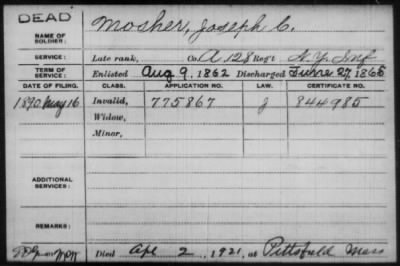 DEAD
NAME OF SOLDIER: Mosher, Joseph C.
SERVICE: Late rank, Co. A 128 Reg't N.Y. Inf
TERM OF SERVICE: Enlisted Aug 9, 1862 Discharged June 27, 1865
DATE OF FILING. CLASS. APPLICATION NO. LAW. CERTIFICATE NO.
1890 May 16 Invalid, 775867 J 844985
Widow,
Minor,
ADDITIONAL SERVICES:
REMARKS:
Died Apr 2, 1921, at Pittsfield Mass